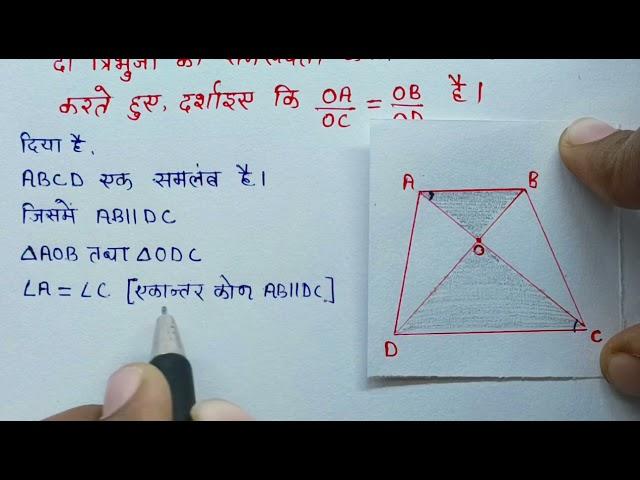 दो त्रिभुजों की
करते हुए, दर्शाइए कि OA/OC = OB/OD है।
दिया है,
ABCD एक समलंब है।
जिसमें AB||DC
△AOB तथा △ODC
∠A = ∠C [एकान्तर कोण AB||DC]
A B
O
D C